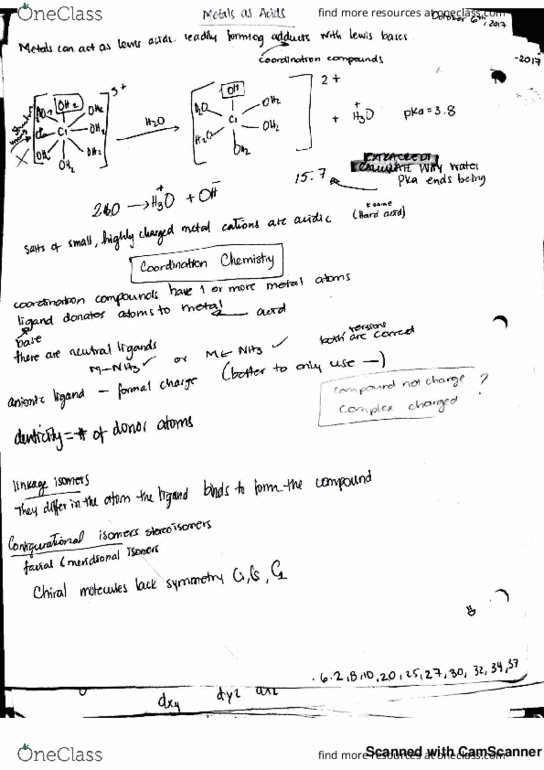 OneClass
find more resources at oneclass.com
October 6th, 2017
Metals as Acids
-2017
Metals can act as lewis acids. readily forming adducts with lewis bases
coordination compounds
3+
2+
OH2
OH
H2O
OH2
OH2
Cr
OH2
OH2
OH2
H2O
H2O
Cr
OH2
OH2
OH2
+ H3O+ pka = 3.8
15.7
CALCULATE WHY water
pka ends being
2H2O → H3O+ + OH-
salts of small, highly charged metal cations are acidic
(Hard acid)
Coordination Chemistry
coordination compounds have 1 or more metal atoms
ligand donates atoms to metal ← acid
base
there are neutral ligands
M-NH3 ✓ or M← NH3 ✓
both versions are correct
(better to only use —)
anionic ligand — formal charge
compound not charge
complex charged ?
denticity = # of donor atoms
linkage isomers
They differ in the atom the ligand binds to form the compound
Configurational isomers stereoisomers
facial / meridional isomers
Chiral molecules lack symmetry Ci, Cs,
. 6. 2, 8, 10, 20, 25, 27, 30, 32, 34, 37
dxy dyz
Scanned with CamScanner
OneClass
find more resources at oneclass.com